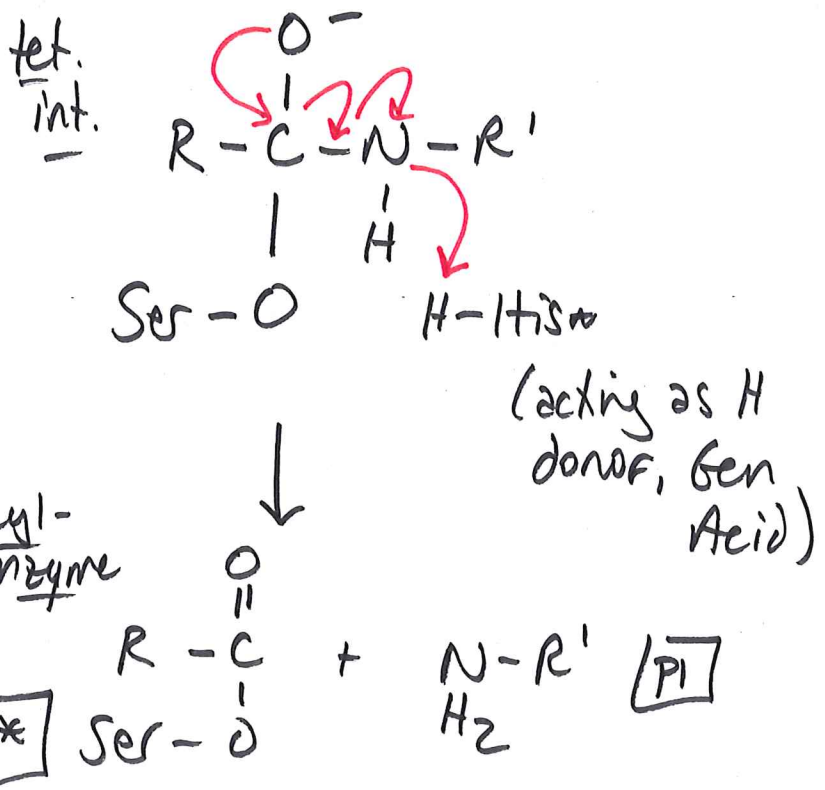 tet.
int.
O −
R - C - N - R'
H
Ser - O
H - His
(acting as H
donor, Gen
Acid)
yl-
nzyme
O
R - C + N - R' P1
H2
* Ser - O